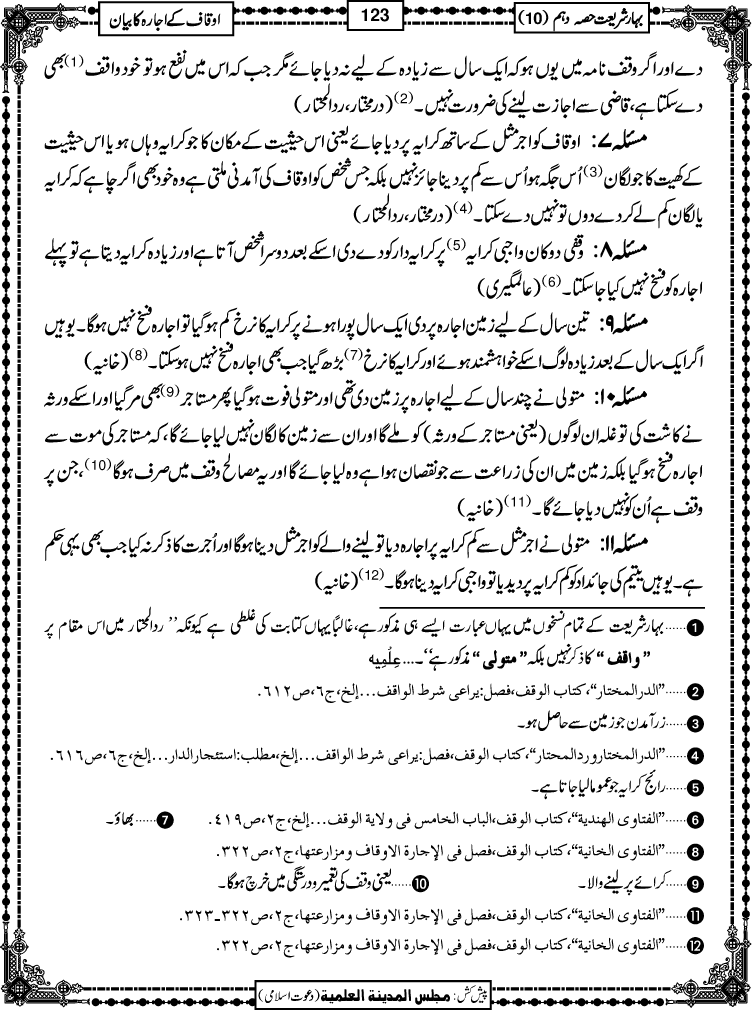 بہارِ شریعت حصہ دہم (10)
123
اوقاف کے اجارہ کا بیان
دے اور اگر وقف نامہ میں یوں ہو کہ ایک سال سے زیادہ کے لیے نہ دیا جائے مگر جب کہ اس میں نفع ہو تو خود واقف (1) بھی
دے سکتا ہے، قاضی سے اجازت لینے کی ضرورت نہیں۔ (2) (درمختار، ردالمحتار)
مسئلہ ۷: اوقاف کو اجر مثل کے ساتھ کرایہ پر دیا جائے یعنی اس حیثیت کے مکان کا جو کرایہ وہاں ہو یا اس حیثیت
کے کھیت کا جو لگان (3) اُس جگہ ہو اُس سے کم پر دینا جائز نہیں بلکہ جس شخص کو اوقاف کی آمدنی ملتی ہے وہ خود بھی اگر چاہے کہ کرایہ
یا لگان کم لے کر دے دوں تو نہیں دے سکتا۔ (4) (درمختار، ردالمحتار)
مسئلہ ۸: وقفی دوکان واجبی کرایہ (5) پر کرایہ دار کو دے دی اسکے بعد دوسرا شخص آتا ہے اور زیادہ کرایہ دیتا ہے تو پہلے
اجارہ کو فسخ نہیں کیا جا سکتا۔ (6) (عالمگیری)
مسئلہ ۹: تین سال کے لیے زمین اجارہ پر دی ایک سال پورا ہونے پر کرایہ کا نرخ کم ہو گیا تو اجارہ فسخ نہیں ہوگا۔ یوہیں
اگر ایک سال کے بعد زیادہ لوگ اسکے خواہشمند ہوئے اور کرایہ کا نرخ (7) بڑھ گیا جب بھی اجارہ فسخ نہیں ہو سکتا۔ (8) (خانیہ)
مسئلہ ۱۰: متولی نے چند سال کے لیے اجارہ پر زمین دی تھی اور متولی فوت ہو گیا پھر مستاجر (9) بھی مر گیا اور اسکے ورثہ
نے کاشت کی تو غلہ ان لوگوں (یعنی مستاجر کے ورثہ) کو ملے گا اور ان سے زمین کا لگان نہیں لیا جائے گا، کہ مستاجر کی موت سے
اجارہ فسخ ہو گیا بلکہ زمین میں ان کی زراعت سے جو نقصان ہوا ہے وہ لیا جائے گا اور یہ مصالح وقف میں صرف ہوگا (10)، جن پر
وقف ہے اُن کو نہیں دیا جائے گا۔ (11) (خانیہ)
مسئلہ ۱۱: متولی نے اجر مثل سے کم کرایہ پر اجارہ دیا تو لینے والے کو اجر مثل دینا ہوگا اور اُجرت کا ذکر نہ کیا جب بھی یہی حکم
ہے۔ یوہیں یتیم کی جائداد کو کم کرایہ پر دیدیا تو واجبی کرایہ دینا ہوگا۔ (12) (خانیہ)
1 ......بہارشریعت کے تمام نسخوں میں یہاں عبارت ایسے ہی مذکور ہے، غالبًا یہاں کتابت کی غلطی ہے کیونکہ’’ ردالمحتار میں اس مقام پر
” واقف “ کا ذکر نہیں بلکہ ” متولی “ مذکور ہے‘‘۔...عِلْمِیه
2 ......”الدرالمختار“، کتاب الوقف، فصل: یراعی شرط الواقف...إلخ، ج٦، ص٦١٢.
3 ......زرآمدن جو زمین سے حاصل ہو۔
4 ......”الدرالمختار وردالمحتار“، کتاب الوقف، فصل: یراعی شرط الواقف...إلخ، مطلب: استئجارالدار...إلخ، ج٦، ص٦١٦.
5 ......رائج کرایہ جو عموما لیا جاتا ہے۔
6 ......”الفتاوی الهندیة“، کتاب الوقف، الباب الخامس فی ولایة الوقف...إلخ، ج٢، ص٤١٩. 7 ......بھاؤ۔
8 ......”الفتاوی الخانیة“، کتاب الوقف، فصل فی الإجارة الاوقاف ومزارعتها، ج٢، ص٣٢٢.
9 ......کرائے پر لینے والا۔ 10 ......یعنی وقف کی تعمیر و درستگی میں خرچ ہوگا۔
11 ......”الفتاوی الخانیة“، کتاب الوقف، فصل فی الإجارة الاوقاف ومزارعتها، ج٢، ص٣٢٢-٣٢٣.
12 ......”الفتاوی الخانیة“، کتاب الوقف، فصل فی الإجارة الاوقاف ومزارعتها، ج٢، ص٣٢٢.
پیش کش: مجلس المدینة العلمیة (دعوت اسلامی)